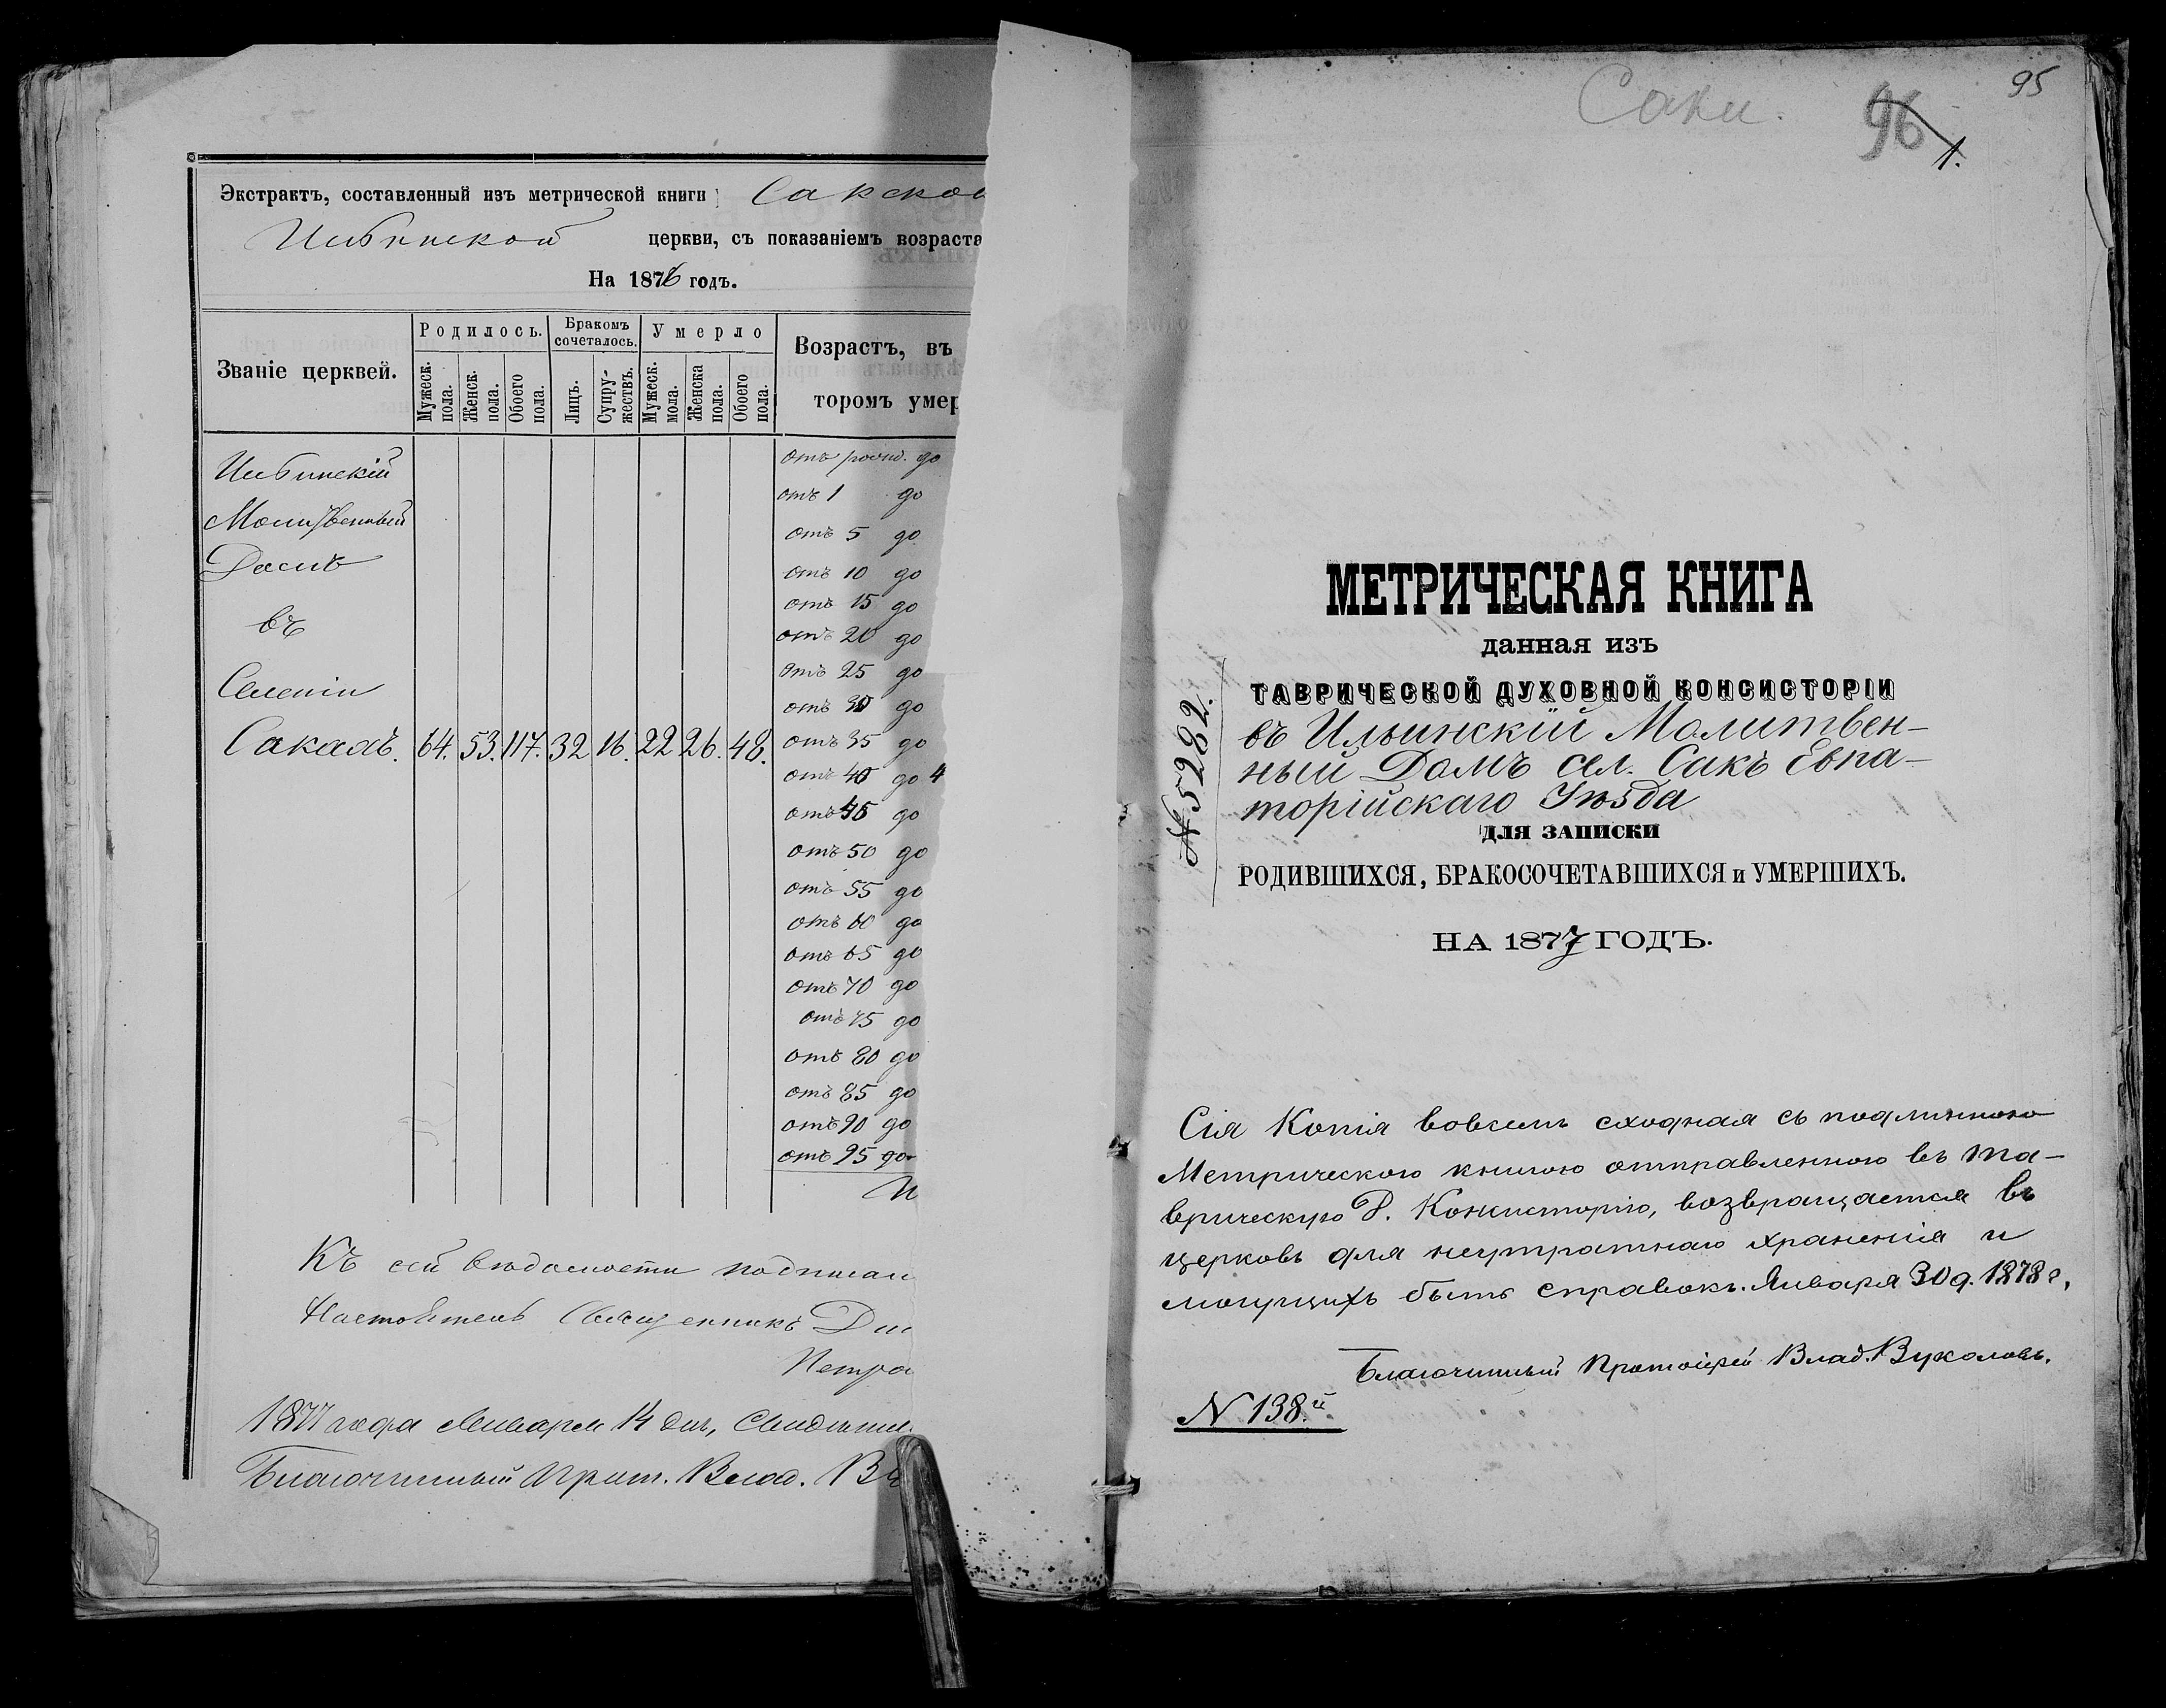 Экстрактъ, составленный изъ метрической книги Сакской
Ильинской церкви, съ показаніемъ возраста
На 1876 годъ.
Званіе церквей.
Родилось.
Бракомъ сочеталось.
Умерло
Возрастъ, въ
торомъ умер
Мужеск. пола.
Женск. пола.
Обоего пола.
Лицъ.
Супру-жествъ.
Мужеск. мола.
Женска пола.
Обоего пола.
Ильинскій
Молитвенный
Домъ
въ
Селеніи
Сакахъ. 64. 53. 117. 32 16. 22 26. 48.
отъ рожд. до
отъ 1 до
отъ 5 до
отъ 10 до
отъ 15 до
отъ 20 до
отъ 25 до
отъ 30 до
отъ 35 до
отъ 40 до 4
отъ 45 до
отъ 50 до
отъ 55 до
отъ 60 до
отъ 65 до
отъ 70 до
отъ 75 до
отъ 80 до
отъ 85 до
отъ 90 до
отъ 95 до
И
Къ сей вѣдомости подписал
Настоятель Священникъ Ди
Петро
1877 года Января 14 дня, Свидѣтел
Благочинный Прот. Влад. Ву
Саки.
96
1.
95
МЕТРИЧЕСКАЯ КНИГА
данная изъ
ТАВРИЧЕСКОЙ ДУХОВНОЙ КОНСИСТОРІИ
въ Ильинскій Молитвен-
ный Домъ сел. Сакъ Евпа-
торійскаго Уѣзда
№ 5282.
ДЛЯ ЗАПИСКИ
РОДИВШИХСЯ, БРАКОСОЧЕТАВШИХСЯ и УМЕРШИХЪ.
НА 1877 ГОДЪ.
Сія Копія вовсемъ сходная съ подлинною
Метрическою книгою отправленною въ Та-
врическую Д. Консисторію, возвращается въ
церковь для неутратнаго храненія и
могущихъ быть справокъ. Января 30 д. 1878 г.
Благочинный Протоіерей Влад. Вуколовъ.
N 138.й